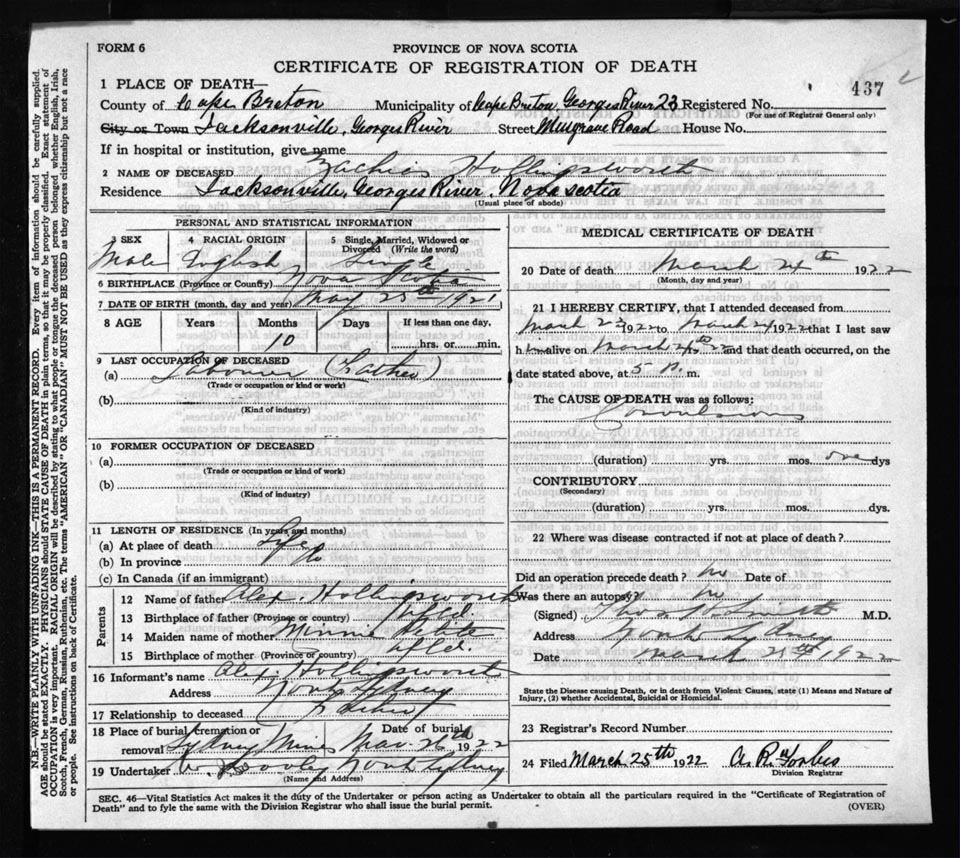 FORM 6
PROVINCE OF NOVA SCOTIA
CERTIFICATE OF REGISTRATION OF DEATH
437
1 PLACE OF DEATH—
County of Cape Breton Municipality of Cape Breton, Georges River 23 Registered No.
(For use of Registrar General only)
City or Town Jacksonville, Georges River Street Musgrave Road House No.
If in hospital or institution, give name
2 NAME OF DECEASED Zachias Hollingsworth
Residence Jacksonville, Georges River, Nova Scotia
(Usual place of abode)
PERSONAL AND STATISTICAL INFORMATION
3 SEX 4 RACIAL ORIGIN 5 Single, Married, Widowed or Divorced (Write the word)
Male English Single
6 BIRTHPLACE (Province or Country) Nova Scotia
7 DATE OF BIRTH (month, day and year) May 25th 1921
8 AGE Years Months Days If less than one day,
10 hrs. or min.
9 LAST OCCUPATION OF DECEASED
(a) Labourer (Father)
(Trade or occupation or kind of work)
(b)
(Kind of industry)
10 FORMER OCCUPATION OF DECEASED
(a)
(Trade or occupation or kind of work)
(b)
(Kind of industry)
11 LENGTH OF RESIDENCE (In years and months)
(a) At place of death Life
(b) In province Do
(c) In Canada (if an immigrant)
Parents
12 Name of father Alex. Hollingsworth
13 Birthplace of father (Province or country) Nfld.
14 Maiden name of mother Minnie
15 Birthplace of mother (Province or country) Nfld.
16 Informant's name Alex Hollingsworth
Address North Sydney
17 Relationship to deceased (Father)
18 Place of burial, cremation or removal Sydney Mines Date of burial Mar. 26th 1922
19 Undertaker North Sydney
(Name and Address)
MEDICAL CERTIFICATE OF DEATH
20 Date of death March 24th 1922
(Month, day and year)
21 I HEREBY CERTIFY, that I attended deceased from
March 23 1922 to March 24 1922 that I last saw
him alive on March 24th 22 and that death occurred, on the
date stated above, at 5 P. m.
The CAUSE OF DEATH was as follows:
Convulsions
(duration) yrs. mos. one dys
CONTRIBUTORY
(Secondary)
(duration) yrs. mos. dys.
22 Where was disease contracted if not at place of death?
Did an operation precede death? no Date of
Was there an autopsy? no
(Signed) M.D.
Address North Sydney
Date March 24th 1922
State the Disease causing Death, or in death from Violent Causes, state (1) Means and Nature of Injury, (2) whether Accidental, Suicidal or Homicidal.
23 Registrar's Record Number
24 Filed March 25th 1922 A. R. Forbes
Division Registrar
SEC. 46—Vital Statistics Act makes it the duty of the Undertaker or person acting as Undertaker to obtain all the particulars required in the "Certificate of Registration of
Death" and to fyle the same with the Division Registrar who shall issue the burial permit. (OVER)
N.B.—WRITE PLAINLY WITH UNFADING INK—THIS IS A PERMANENT RECORD. Every item of information should be carefully supplied.
AGE should be stated EXACTLY. PHYSICIANS should STATE CAUSE OF DEATH in plain terms, so that it may be properly classified. Exact statement of
OCCUPATION is very important. RACIAL ORIGIN will be described by stating to what people or tongue the deceased person belonged whether English, Irish,
Scotch, French, German, Russian, Ruthenian, etc. The terms "AMERICAN" OR "CANADIAN" MUST NOT BE USED as they express citizenship but not a race
or people. See instructions on back of Certificate.